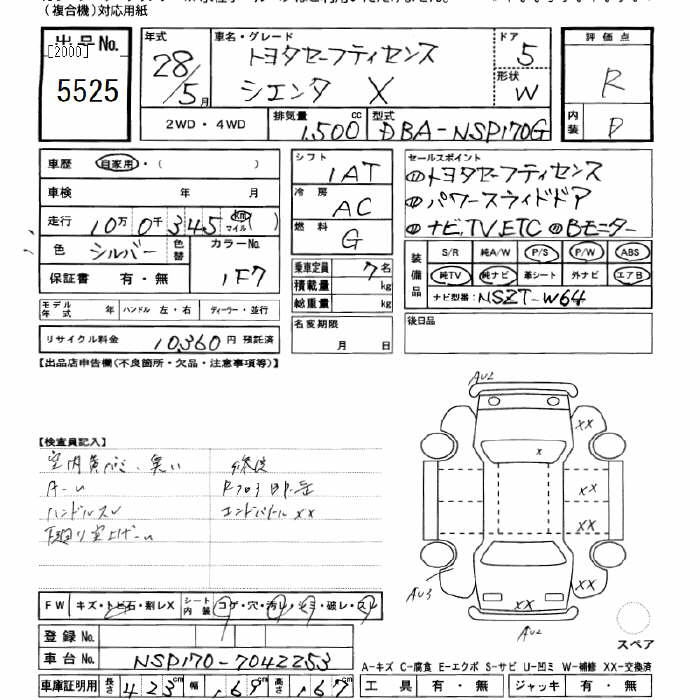 (複合機)対応用紙
出品No.
[2000]
5525
年式
28/5月
車名・グレード
トヨタセーフティセンス
シエンタ X
ドア
5
形状
W
評価点
R
内装
D
2WD・4WD
排気量
1,500cc
型式
DBA-NSP170G
車歴 自家用・( )
車検 年 月
走行 10万0千345 km マイル ( )
色 シルバー 色替
カラーNo.
1F7
保証書 有・無
シフト
1AT
冷房
AC
燃料
G
セールスポイント
①トヨタセーフティセンス
①パワースライドドア
①ナビ,TV,ETC ①Bモニター
装備品
S/R 純A/W P/S P/W ABS
純TV 純ナビ 革シート 外ナビ エアB
ナビ型番: NSZT-W64
乗車定員 7名
積載量 kg
総重量 kg
モデル年式 年 ハンドル 左・右 ディーラー・並行
リサイクル料金 10,360円 預託済
名変期限
月 日
後日品
【出品店申告欄(不良箇所・欠品・注意事項等)】
【検査員記入】
室内
臭い
ハンドルスレ
エンドパネルXX
AU2
XX
X
XX
XX
AU3
XX
XX
AU2
スペア
FW キズ・トビ石・刺レX
シート内装 コゲ・穴・汚レ・シミ・破レ・スレ
登録No.
車台No. NSP170-7042253
車庫証明用 長さ 423cm 幅 169cm 高さ 167cm
A-キズ C-腐食 E-エクボ S-サビ U-凹ミ W-補修 XX-交換済
工具 有・無 ジャッキ 有・無